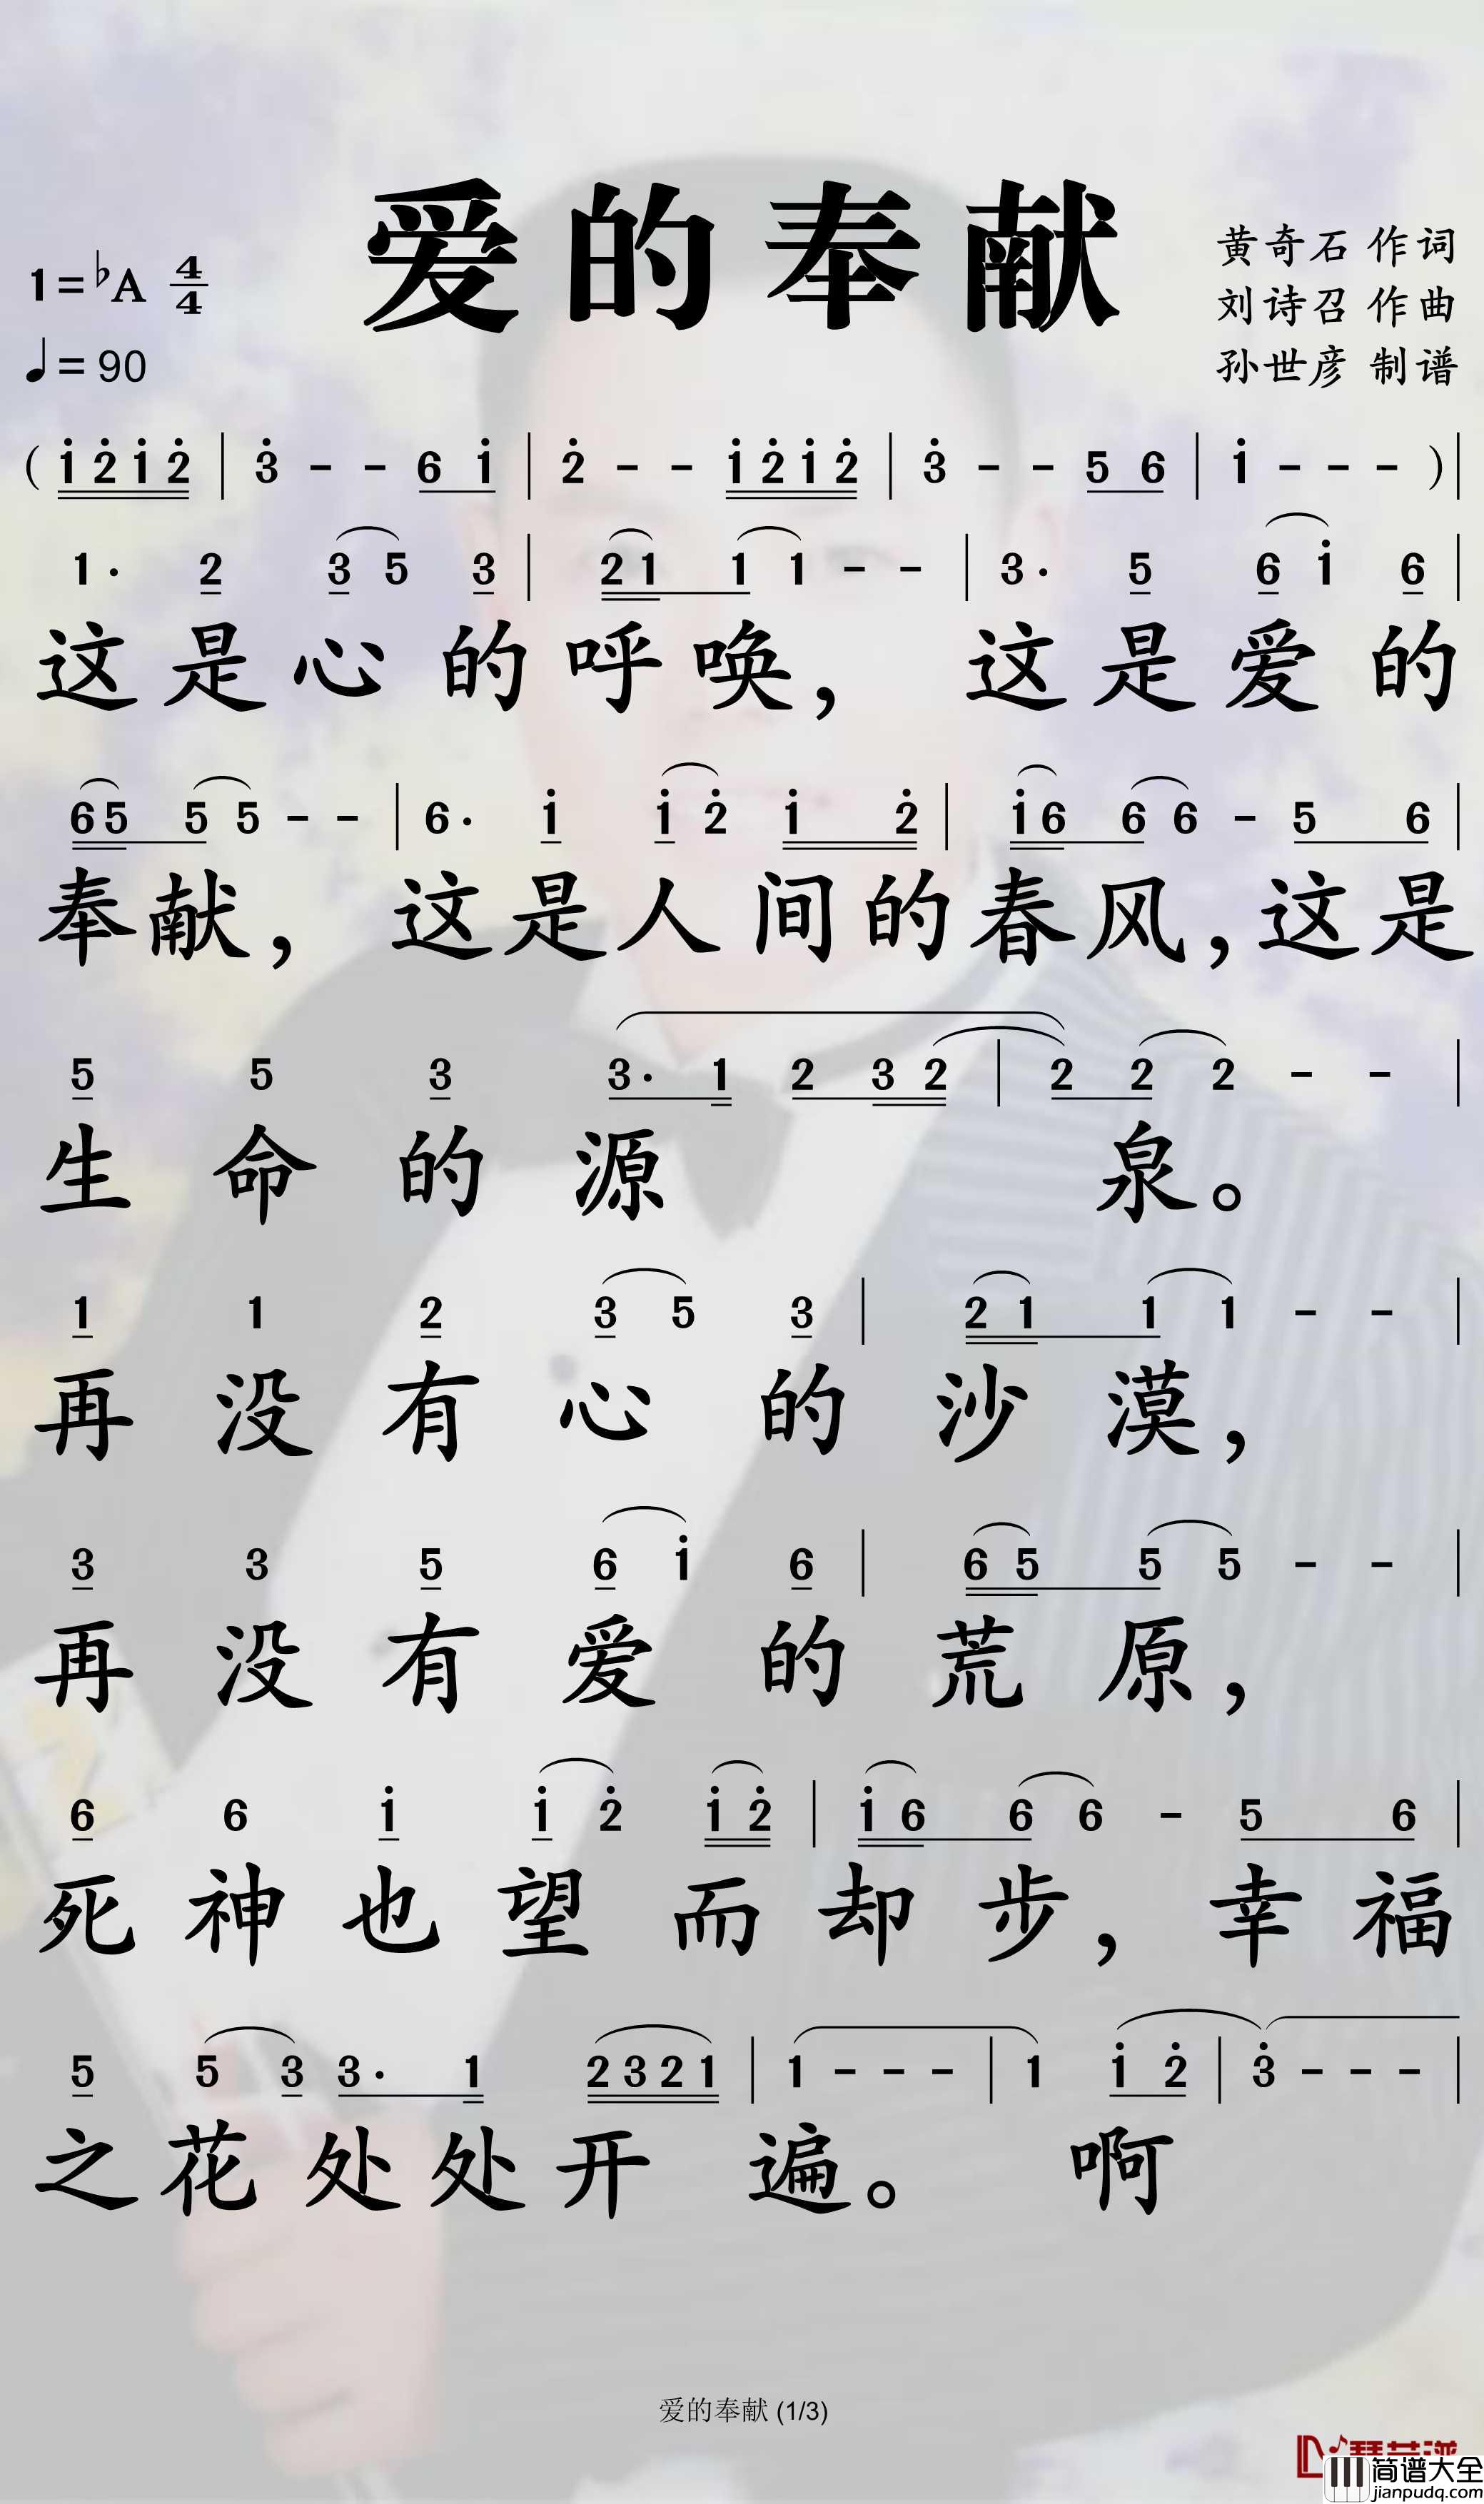 爱的奉献
1=♭A 4/4
♩=90
黄奇石 作词
刘诗召 作曲
孙世彦 制谱
( i̇ 2̇ i̇ 2̇ | 3̇ - - 6 i̇ | 2̇ - - i̇ 2̇ i̇ 2̇ | 3̇ - - 5 6 | i̇ - - - ) |
1· 2 3 5 3 | 2 1 1 1 - - | 3· 5 6 i̇ 6 |
这是心的呼唤，这是爱的
6 5 5 5 - - | 6· i̇ i̇ 2̇ i̇ 2̇ | i̇ 6 6 6 - 5 6 |
奉献，这是人间的春风，这是
5 5 3 3· 1 2 3 2 | 2 2 2 - - |
生命的源泉。
1 1 2 3 5 3 | 2 1 1 1 - - |
再没有心的沙漠，
3 3 5 6 i̇ 6 | 6 5 5 5 - - |
再没有爱的荒原，
6 6 i̇ i̇ 2̇ i̇ 2̇ | i̇ 6 6 6 - 5 6 |
死神也望而却步，幸福
5 5 3 3· 1 2 3 2 1 | 1 - - - | 1 i̇ 2̇ | 3̇ - - - |
之花处处开遍。啊
爱的奉献 (1/3)
简谱大全
jianpudq.com